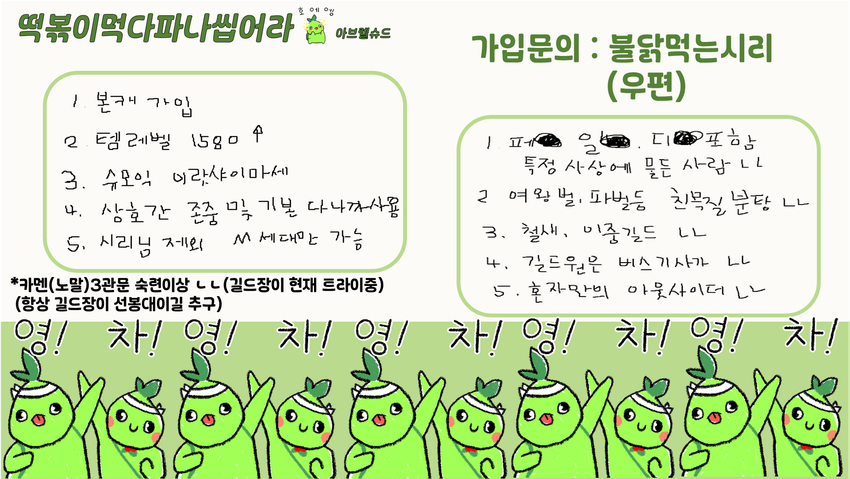 떡볶이먹다파나씹어라
호에엥
아브렐슈드
1. 본캐 가입
2 템레벨 1580↑
3. 슈모익 이랏샤이마세
4. 상호간 존중 및 기본 다나까사용
5. 시리님 제외 M세대만 가능
*카멘(노말)3관문 숙련이상 ㄴㄴ(길드장이 현재 트라이중)
(항상 길드장이 선봉대이길 추구)
가입문의 : 불닭먹는시리
(우편)
1. 페 일 . 디 포함
특정 사상에 물든 사람 ㄴㄴ
2 여왕벌, 파벌등 친목질 분탕 ㄴㄴ
3. 철새, 이중길드 ㄴㄴ
4. 길드원은 버스기사가 ㄴㄴ
5. 혼자만의 아웃사이더 ㄴㄴ
영! 차! 영! 차! 영! 차! 영! 차! 영! 차!